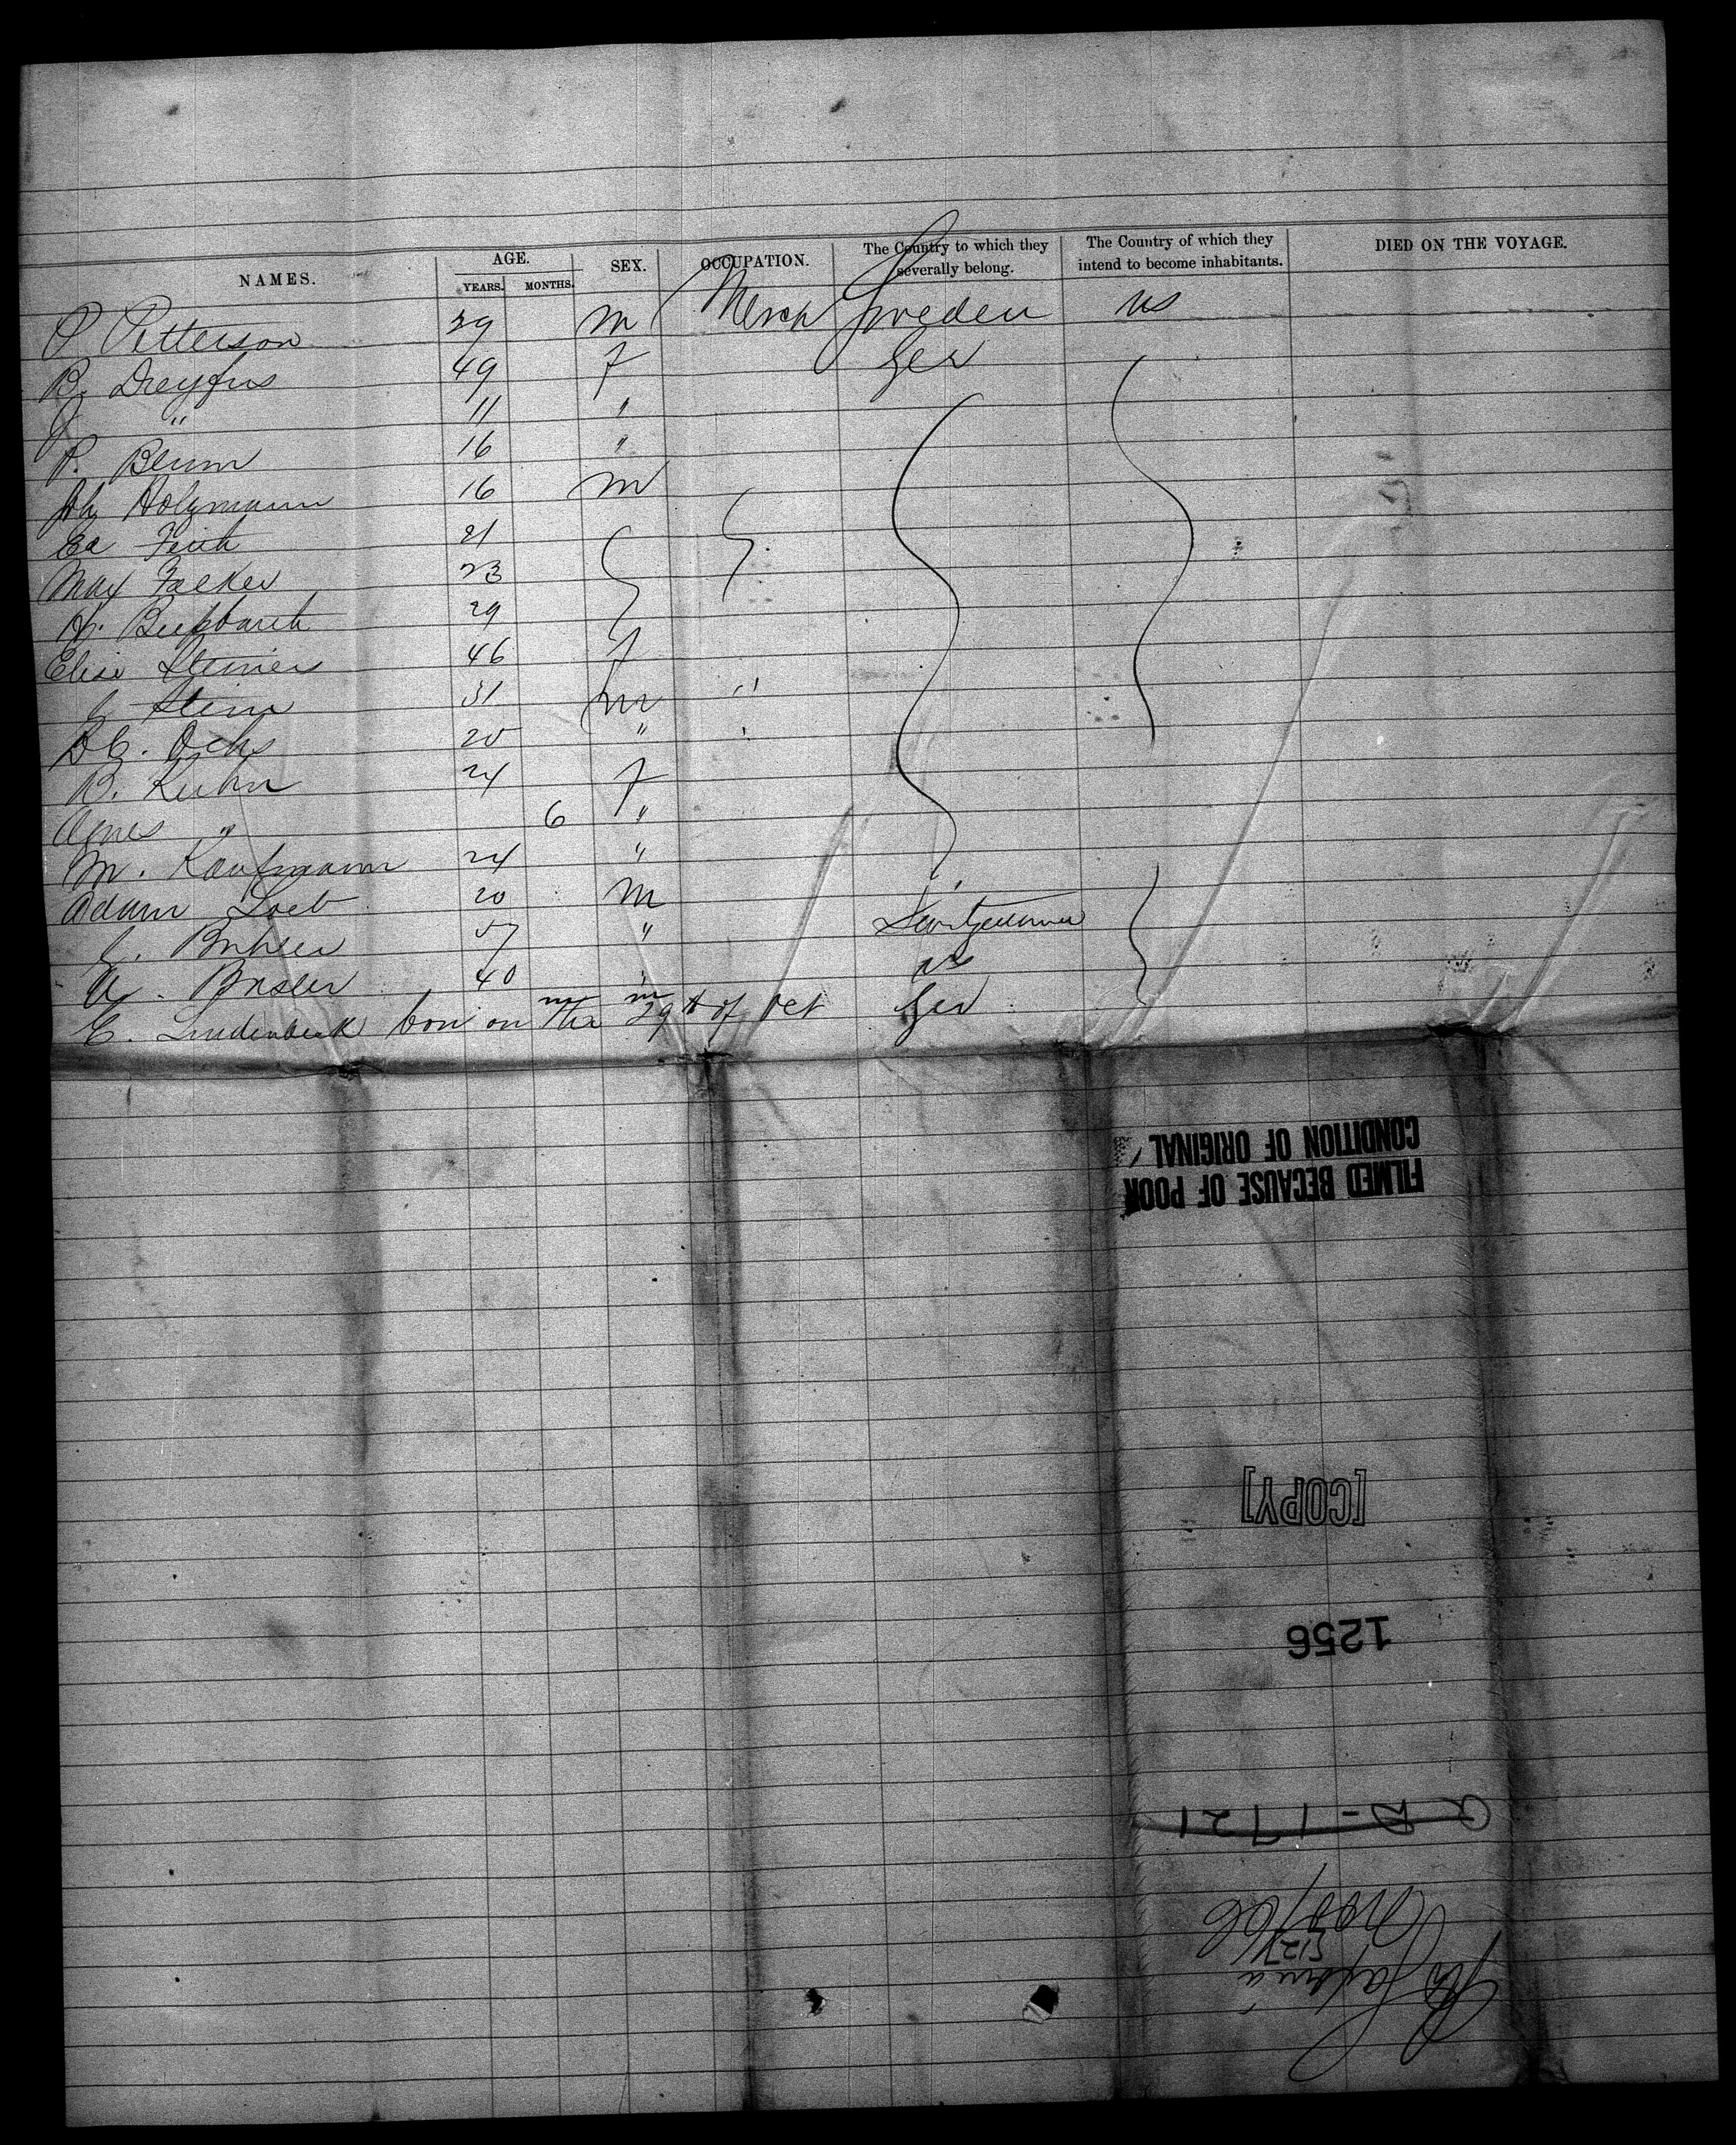 NAMES. AGE. YEARS. MONTHS. SEX. OCCUPATION. The Country to which they severally belong. The Country of which they intend to become inhabitants. DIED ON THE VOYAGE.
P Petterson 29 m Merch Sweden us
B. Dreyfus 49 f Ger
J " 11 "
P. Blum 16 "
Joh Holzmann 16 m
Ed 21
Max 23
H. 29
Elise Steiner 46 f
J Stein 31 m "
Ochs 20 " "
B. Kuhn 24 f
Agnes " 6 "
M. Kaufmann 24 "
Adam Loeb 20 m
J. 57 "
A. Basler 40 " us
C. Lindenbeck born on the 29th of Oct m m Ger
FILMED BECAUSE OF POOR
CONDITION OF ORIGINAL
[COPY]
1256
1721
Saxonia